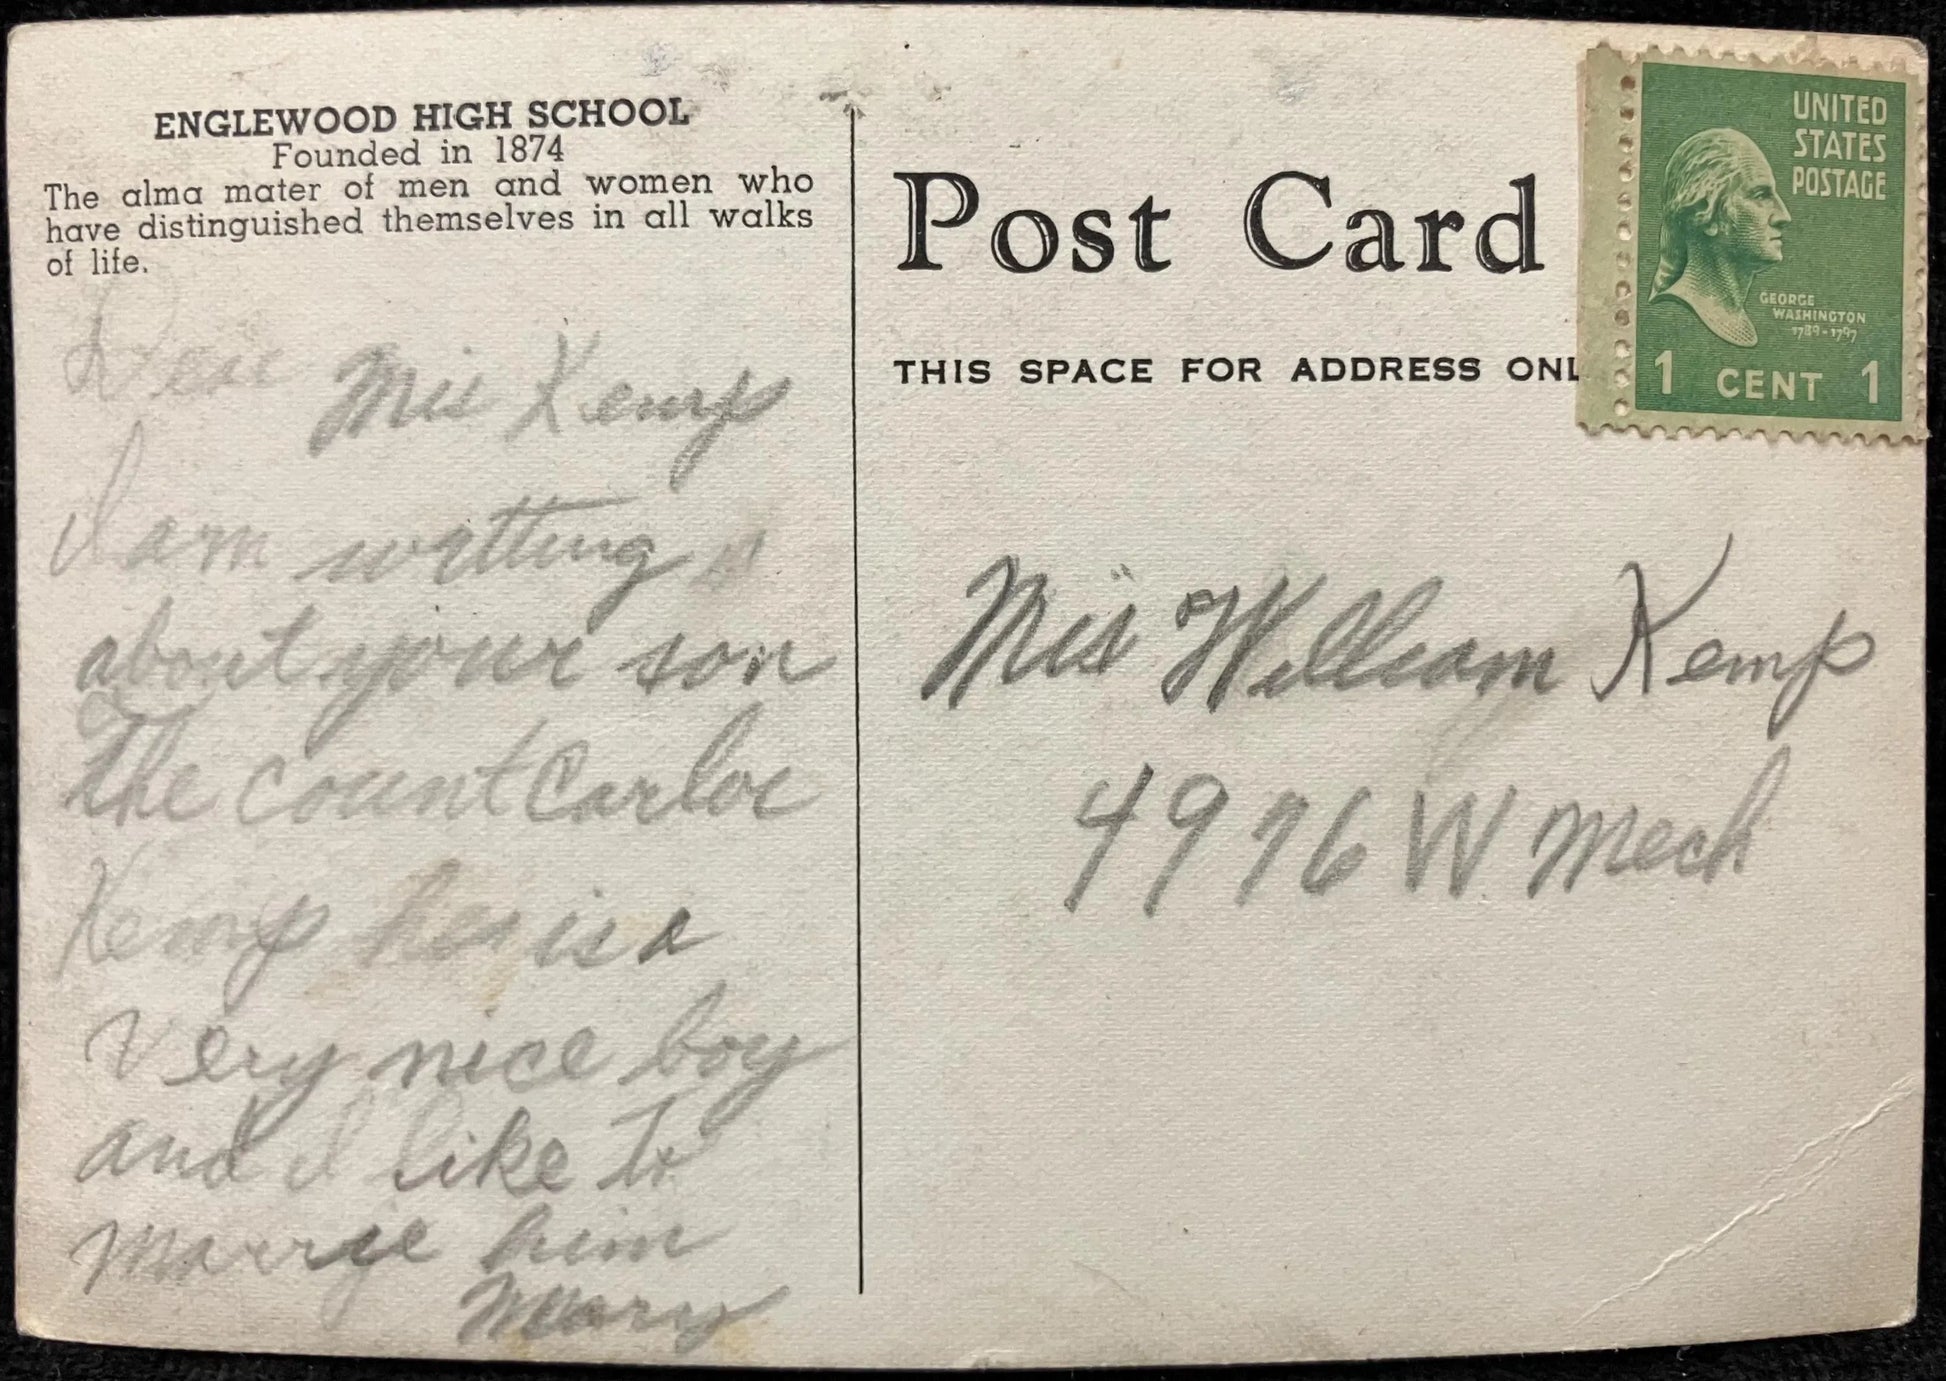 ENGLEWOOD HIGH SCHOOL
Founded in 1874
The alma mater of men and women who
have distinguished themselves in all walks
of life.
Dear Mis Kemp
I am writting
about your son
the count Carloe
Kemp he is a
very nice boy
and I like to
marrie him
Mary
Post Card
THIS SPACE FOR ADDRESS ONL
UNITED
STATES
POSTAGE
GEORGE
WASHINGTON
1789-1797
1 CENT 1
Mis William Kemp
4976 W Mech